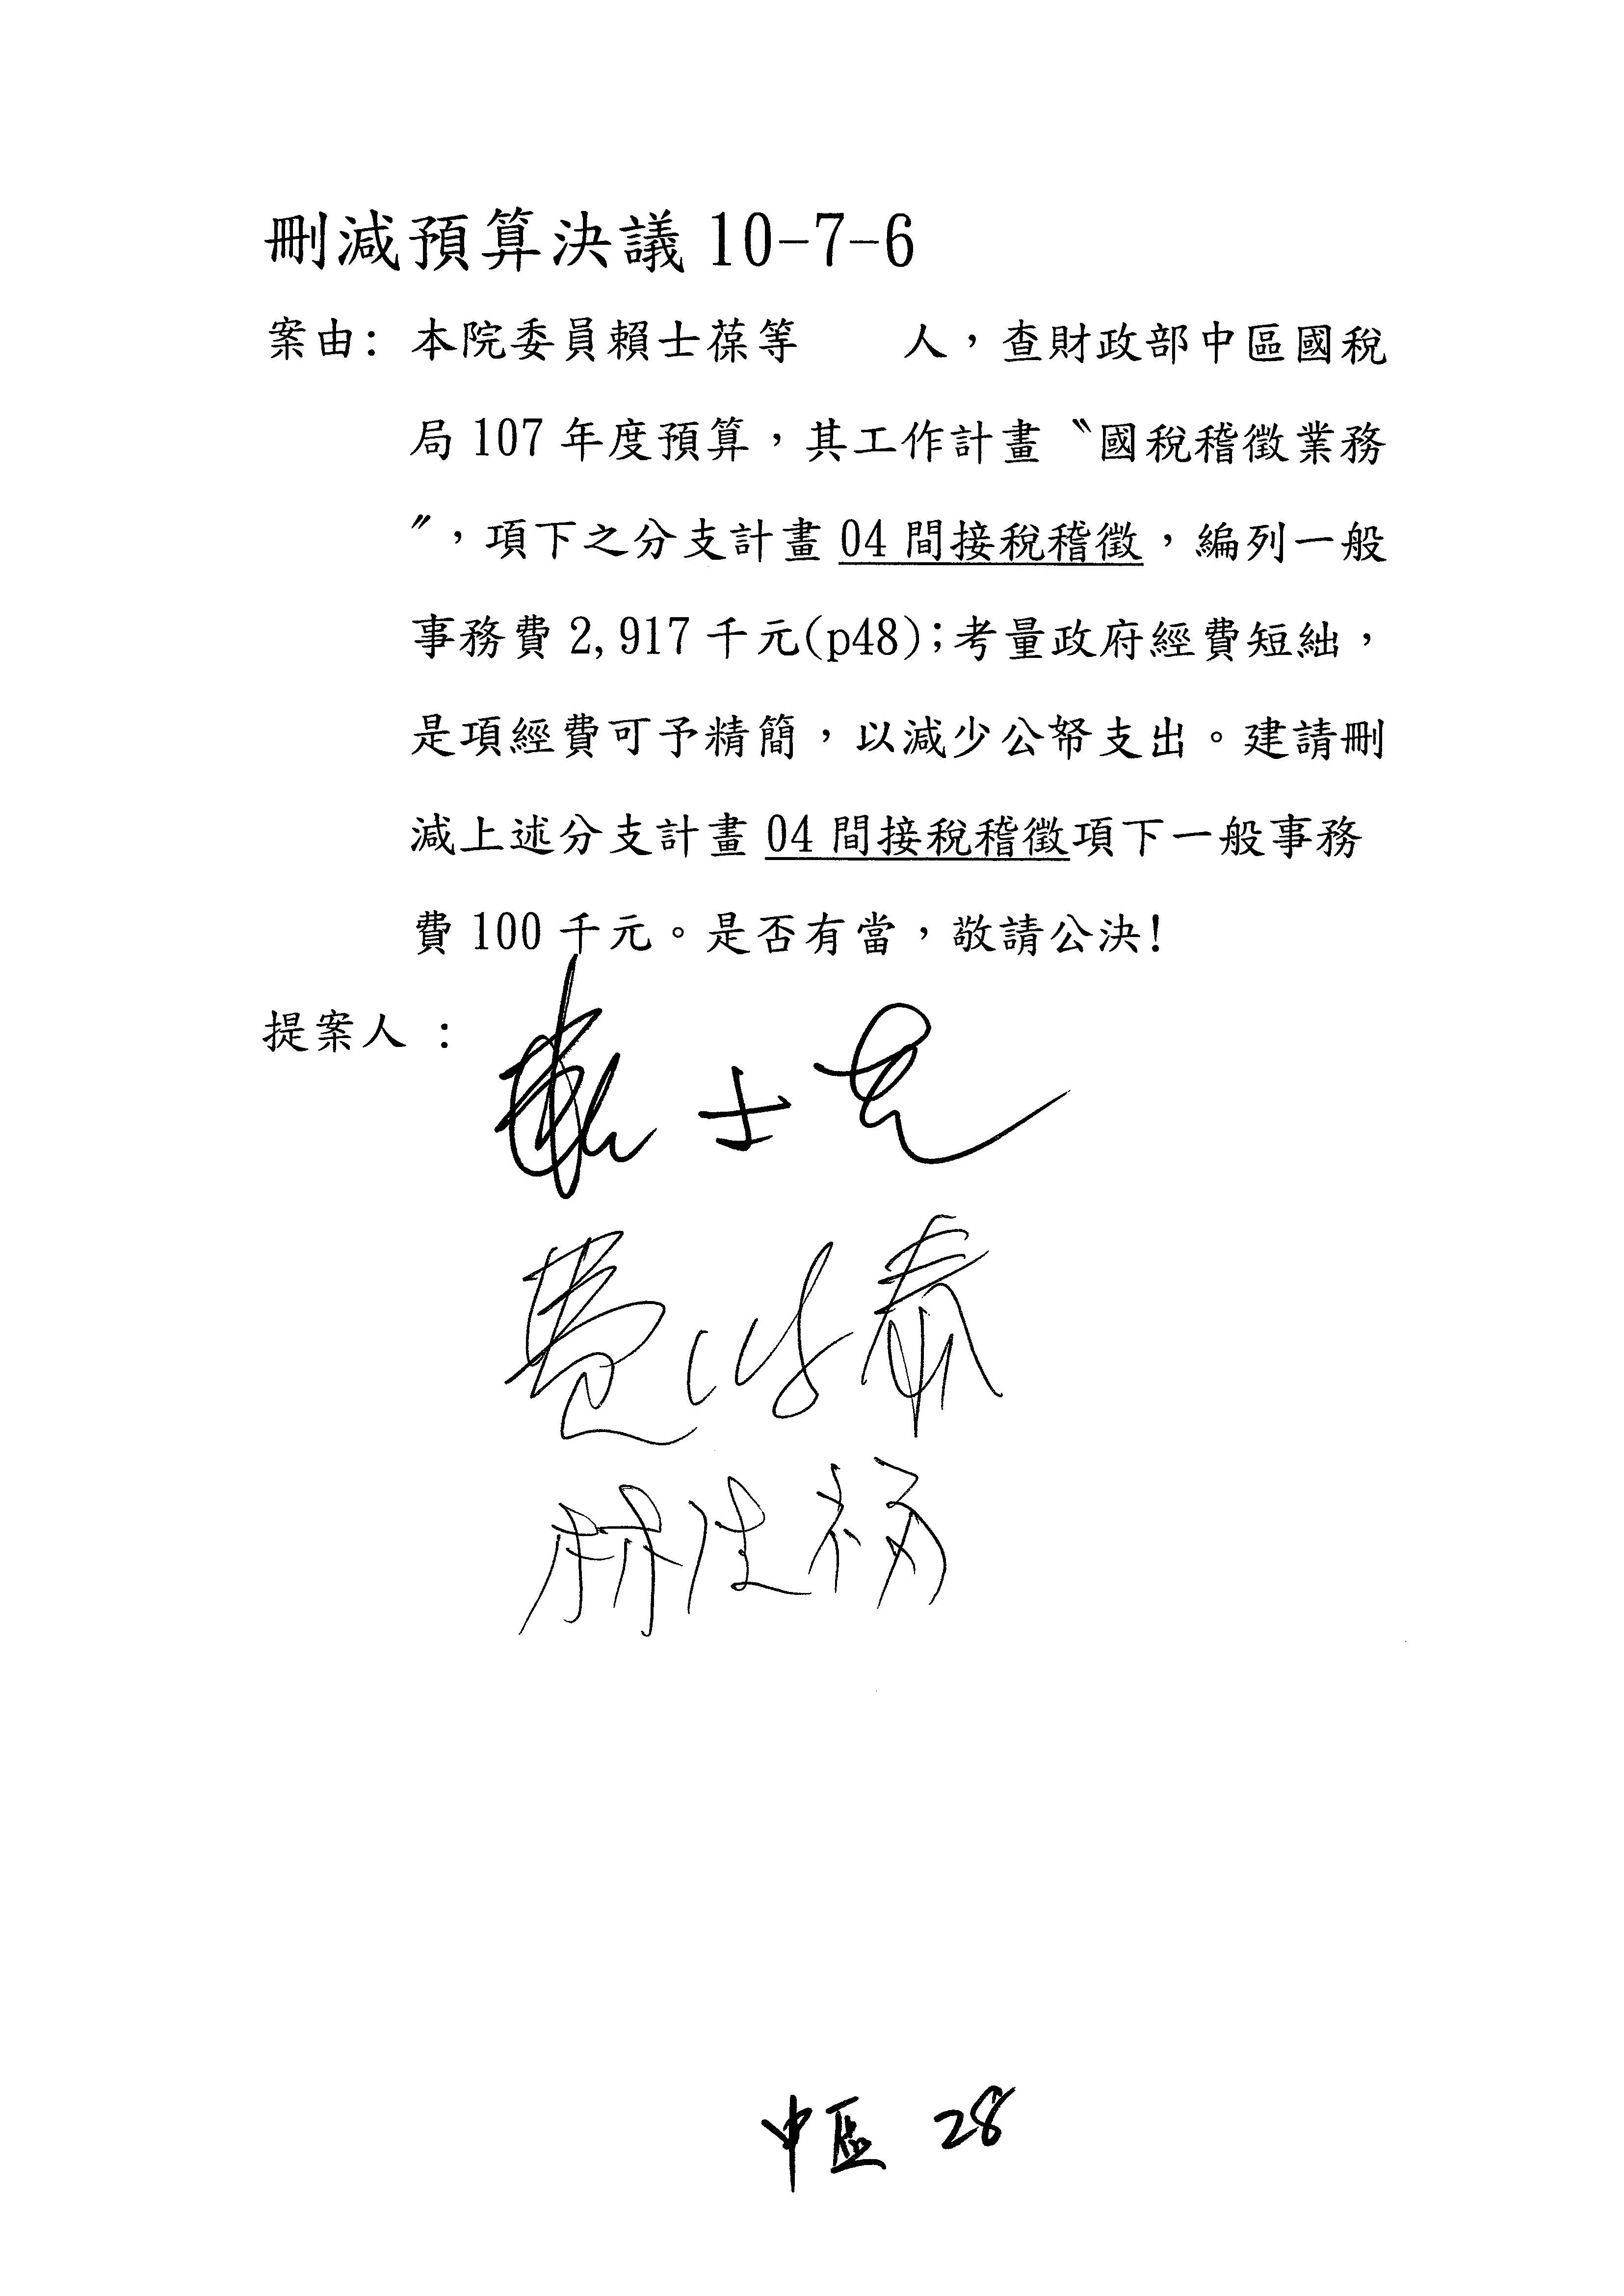 刪減預算決議 10-7-6
案由: 本院委員賴士葆等　　人，查財政部中區國稅
局 107 年度預算，其工作計畫〝國稅稽徵業務
〞，項下之分支計畫 04 間接稅稽徵，編列一般
事務費 2,917 千元(p48);考量政府經費短絀，
是項經費可予精簡，以減少公帑支出。建請刪
減上述分支計畫 04 間接稅稽徵項下一般事務
費 100 千元。是否有當，敬請公決!
提案人 :
賴士葆
費鴻泰
中區 28